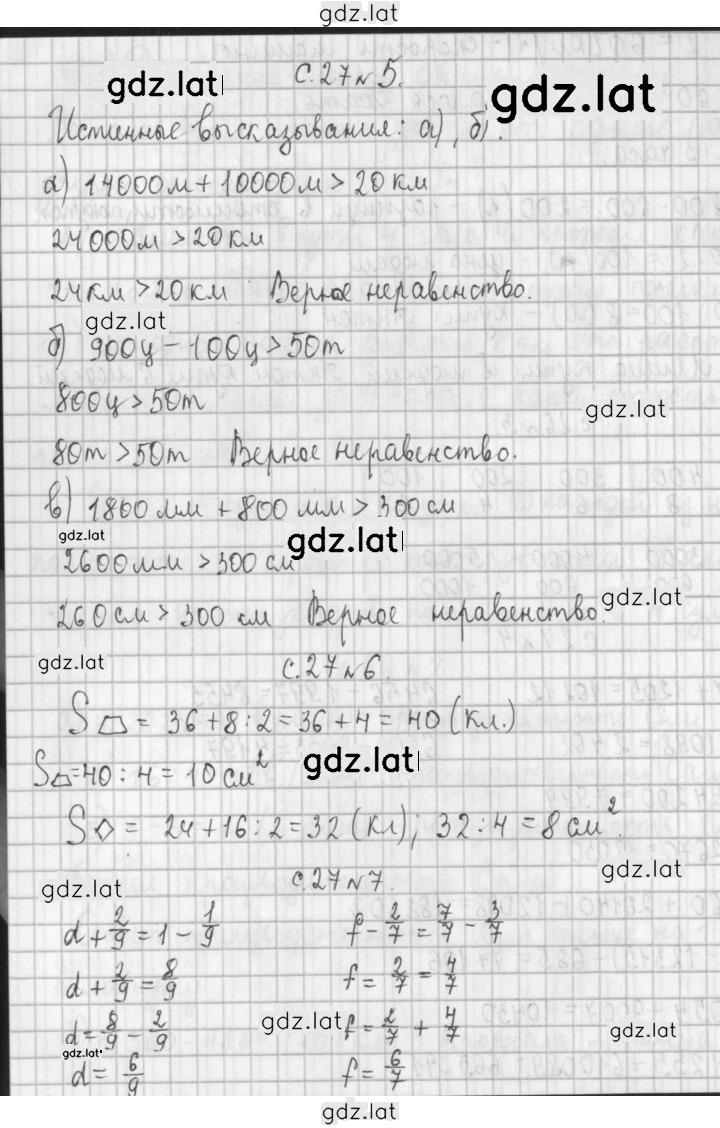 gdz.lat
с.27 № 5.
gdz.lat
gdz.lat
Истинные высказывания: а), б).
а) 14000м + 10000м > 20 км
24000м > 20 км
24 км > 20 км Верное неравенство.
gdz.lat
б) 900ц - 100ц > 50т
800ц > 50т
gdz.lat
80т > 50т Верное неравенство.
в) 1800 мм + 800 мм > 300 см
gdz.lat
gdz.lat
2600 мм > 300 см
260 см > 300 см Верное неравенство.
gdz.lat
gdz.lat
с.27 № 6.
S = 36 + 8 : 2 = 36 + 4 = 40 (кл.)
S = 40 : 4 = 10 см²
gdz.lat
S = 24 + 16 : 2 = 32 (кл); 32 : 4 = 8 см².
gdz.lat
с.27 № 7.
gdz.lat
d + 2/9 = 1 - 1/9 f - 2/7 = 7/7 - 3/7
d + 2/9 = 8/9 f = 2/7 = 4/7
d = 8/9 - 2/9 f = 2/7 + 4/7
gdz.lat
gdz.lat
gdz.lat
d = 6/9 f = 6/7
gdz.lat